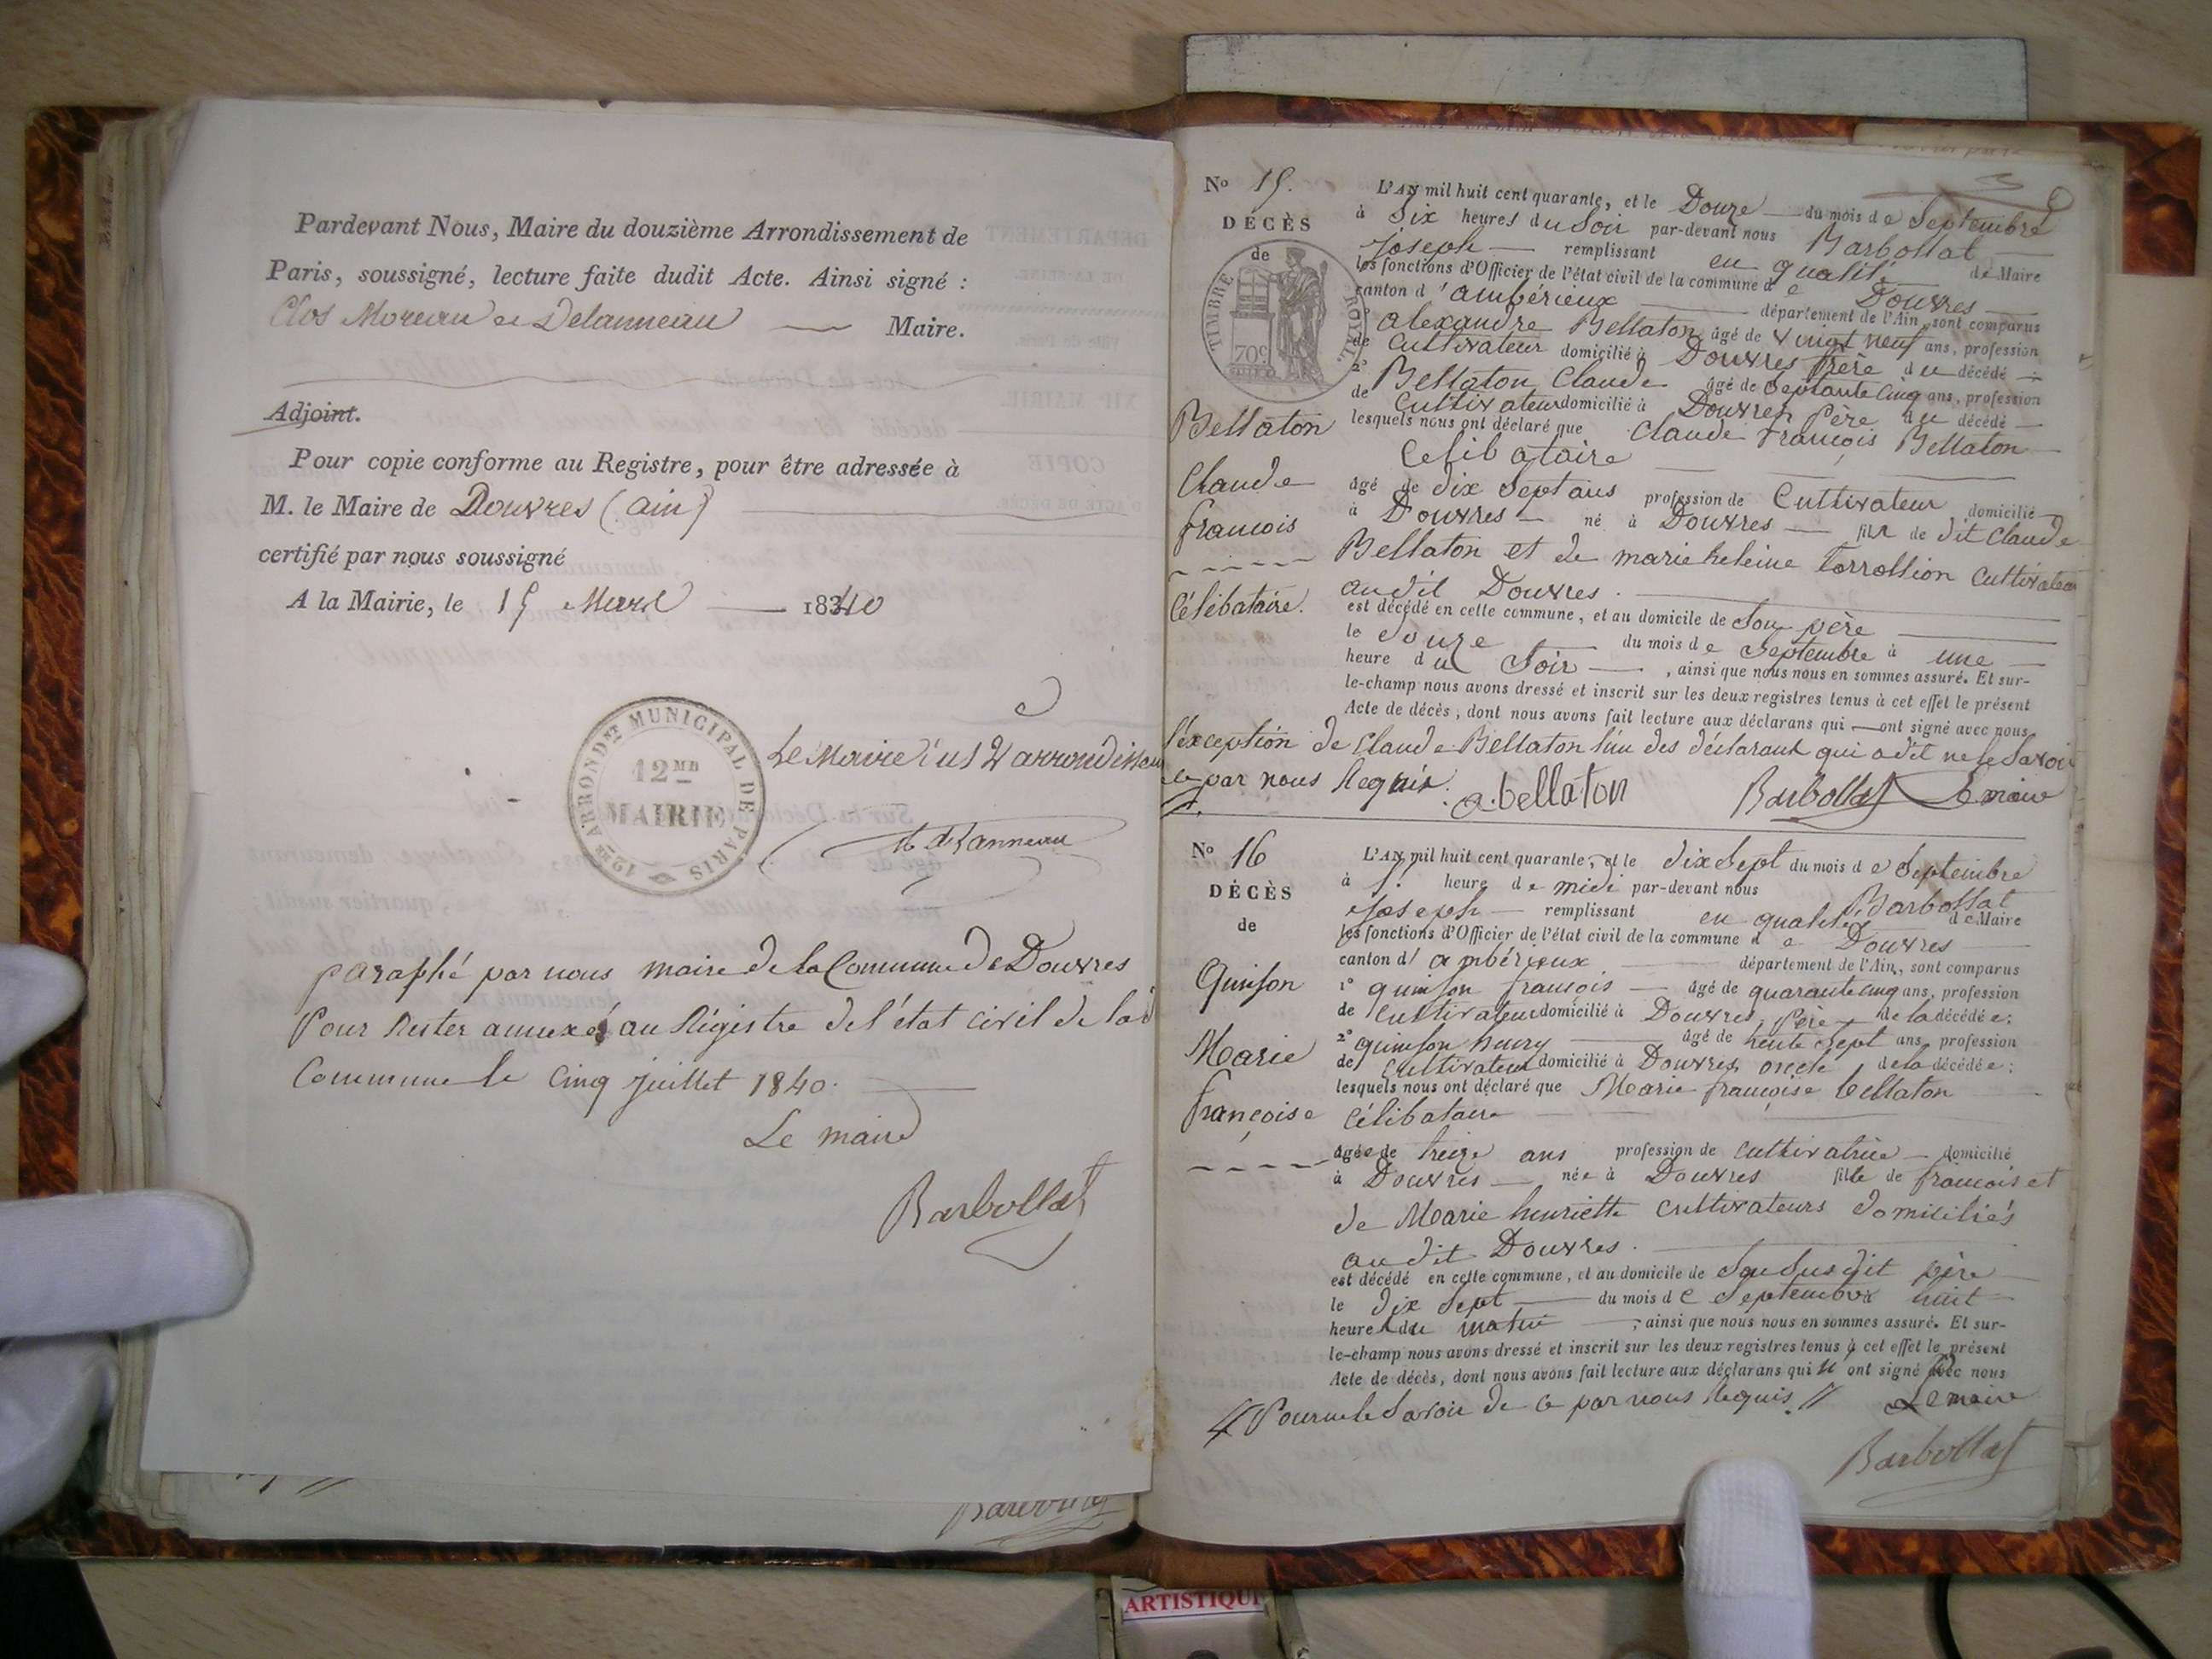 Pardevant Nous, Maire du douzième Arrondissement de
Paris, soussigné, lecture faite dudit Acte. Ainsi signé :
Clos Moreau et Delanneau — Maire.
Adjoint.
Pour copie conforme au Registre, pour être adressée à
M. le Maire de Douvres (ain)
certifié par nous soussigné
A la Mairie, le 15 Mars 1840
ARRONDT MUNICIPAL DE PARIS
12ME
MAIRIE
Le Maire du 12e arrondissem
Delanneau
paraphé par nous maire de la Commune de Douvres
pour rester annexé au Régistre de l'état civil de la d
Commune le Cinq juillet 1840.
Le maire
Barbollat
No 15.
DÉCÈS
de
TIMBRE ROYAL
70c
Bellaton
Claude
francois
Célibataire.
L'AN mil huit cent quarante, et le Douze du mois de Septembre
à Six heures du Soir par-devant nous Barbollat
joseph remplissant en qualité de Maire
les fonctions d'Officier de l'état civil de la commune de Douvres
canton d'ambérieux département de l'Ain, sont comparus
1° alexandre Bellaton âgé de vingt neuf ans, profession
de Cultivateur domicilié à Douvres frère du décédé
2° Bellaton Claude âgé de Septante Cinq ans, profession
de Cultivateur domicilié à Douvres Père du décédé
lesquels nous ont déclaré que Claude françois Bellaton
Celibataire
âgé de dix Sept ans profession de Cultivateur domicilié
à Douvres né à Douvres fils de dit Claude
Bellaton et de marie heleine Corrollion Cultivateur
audit Douvres.
est décédé en cette commune, et au domicile de Son père
le douze du mois de Septembre à une
heure du Soir, ainsi que nous nous en sommes assuré. Et sur-
le-champ nous avons dressé et inscrit sur les deux registres tenus à cet effet le présent
Acte de décès, dont nous avons fait lecture aux déclarans qui ont signé avec nous
l'exception de Claude Bellaton l'un des déclarant qui a dit ne le Savoir
de ce par nous Requis. a. bellaton Barbollat Le maire
No 16
DÉCÈS
de
Quinson
Marie
françoise
L'AN mil huit cent quarante, et le dix Sept du mois de Septembre
à 1. heure de midi par-devant nous Barbollat
Joseph remplissant en qualité de Maire
les fonctions d'Officier de l'état civil de la commune de Douvres
canton d'ambérieux département de l'Ain, sont comparus
1° quinson françois âgé de quarante cinq ans, profession
de Cultivateur domicilié à Douvres, Père de la décédée;
2° quinson henry âgé de trente Sept ans, profession
de Cultivateur domicilié à Douvres oncle de la décédée;
lesquels nous ont déclaré que Marie françoise bellaton
Célibataire
âgée de treize ans profession de Cultivatrice domicilié
à Douvres née à Douvres fille de françois et
de Marie henriette Cultivateurs domiciliés
audit Douvres.
est décédé en cette commune, et au domicile de Son Susdit père
le dix Sept du mois de Septembre huit
heures du matin, ainsi que nous nous en sommes assuré. Et sur-
le-champ nous avons dressé et inscrit sur les deux registres tenus à cet effet le présent
Acte de décès, dont nous avons fait lecture aux déclarans qui n'ont signé avec nous
// Pour ne le Savoir de ce par nous Requis. // Le maire
Barbollat
ARTISTIQU